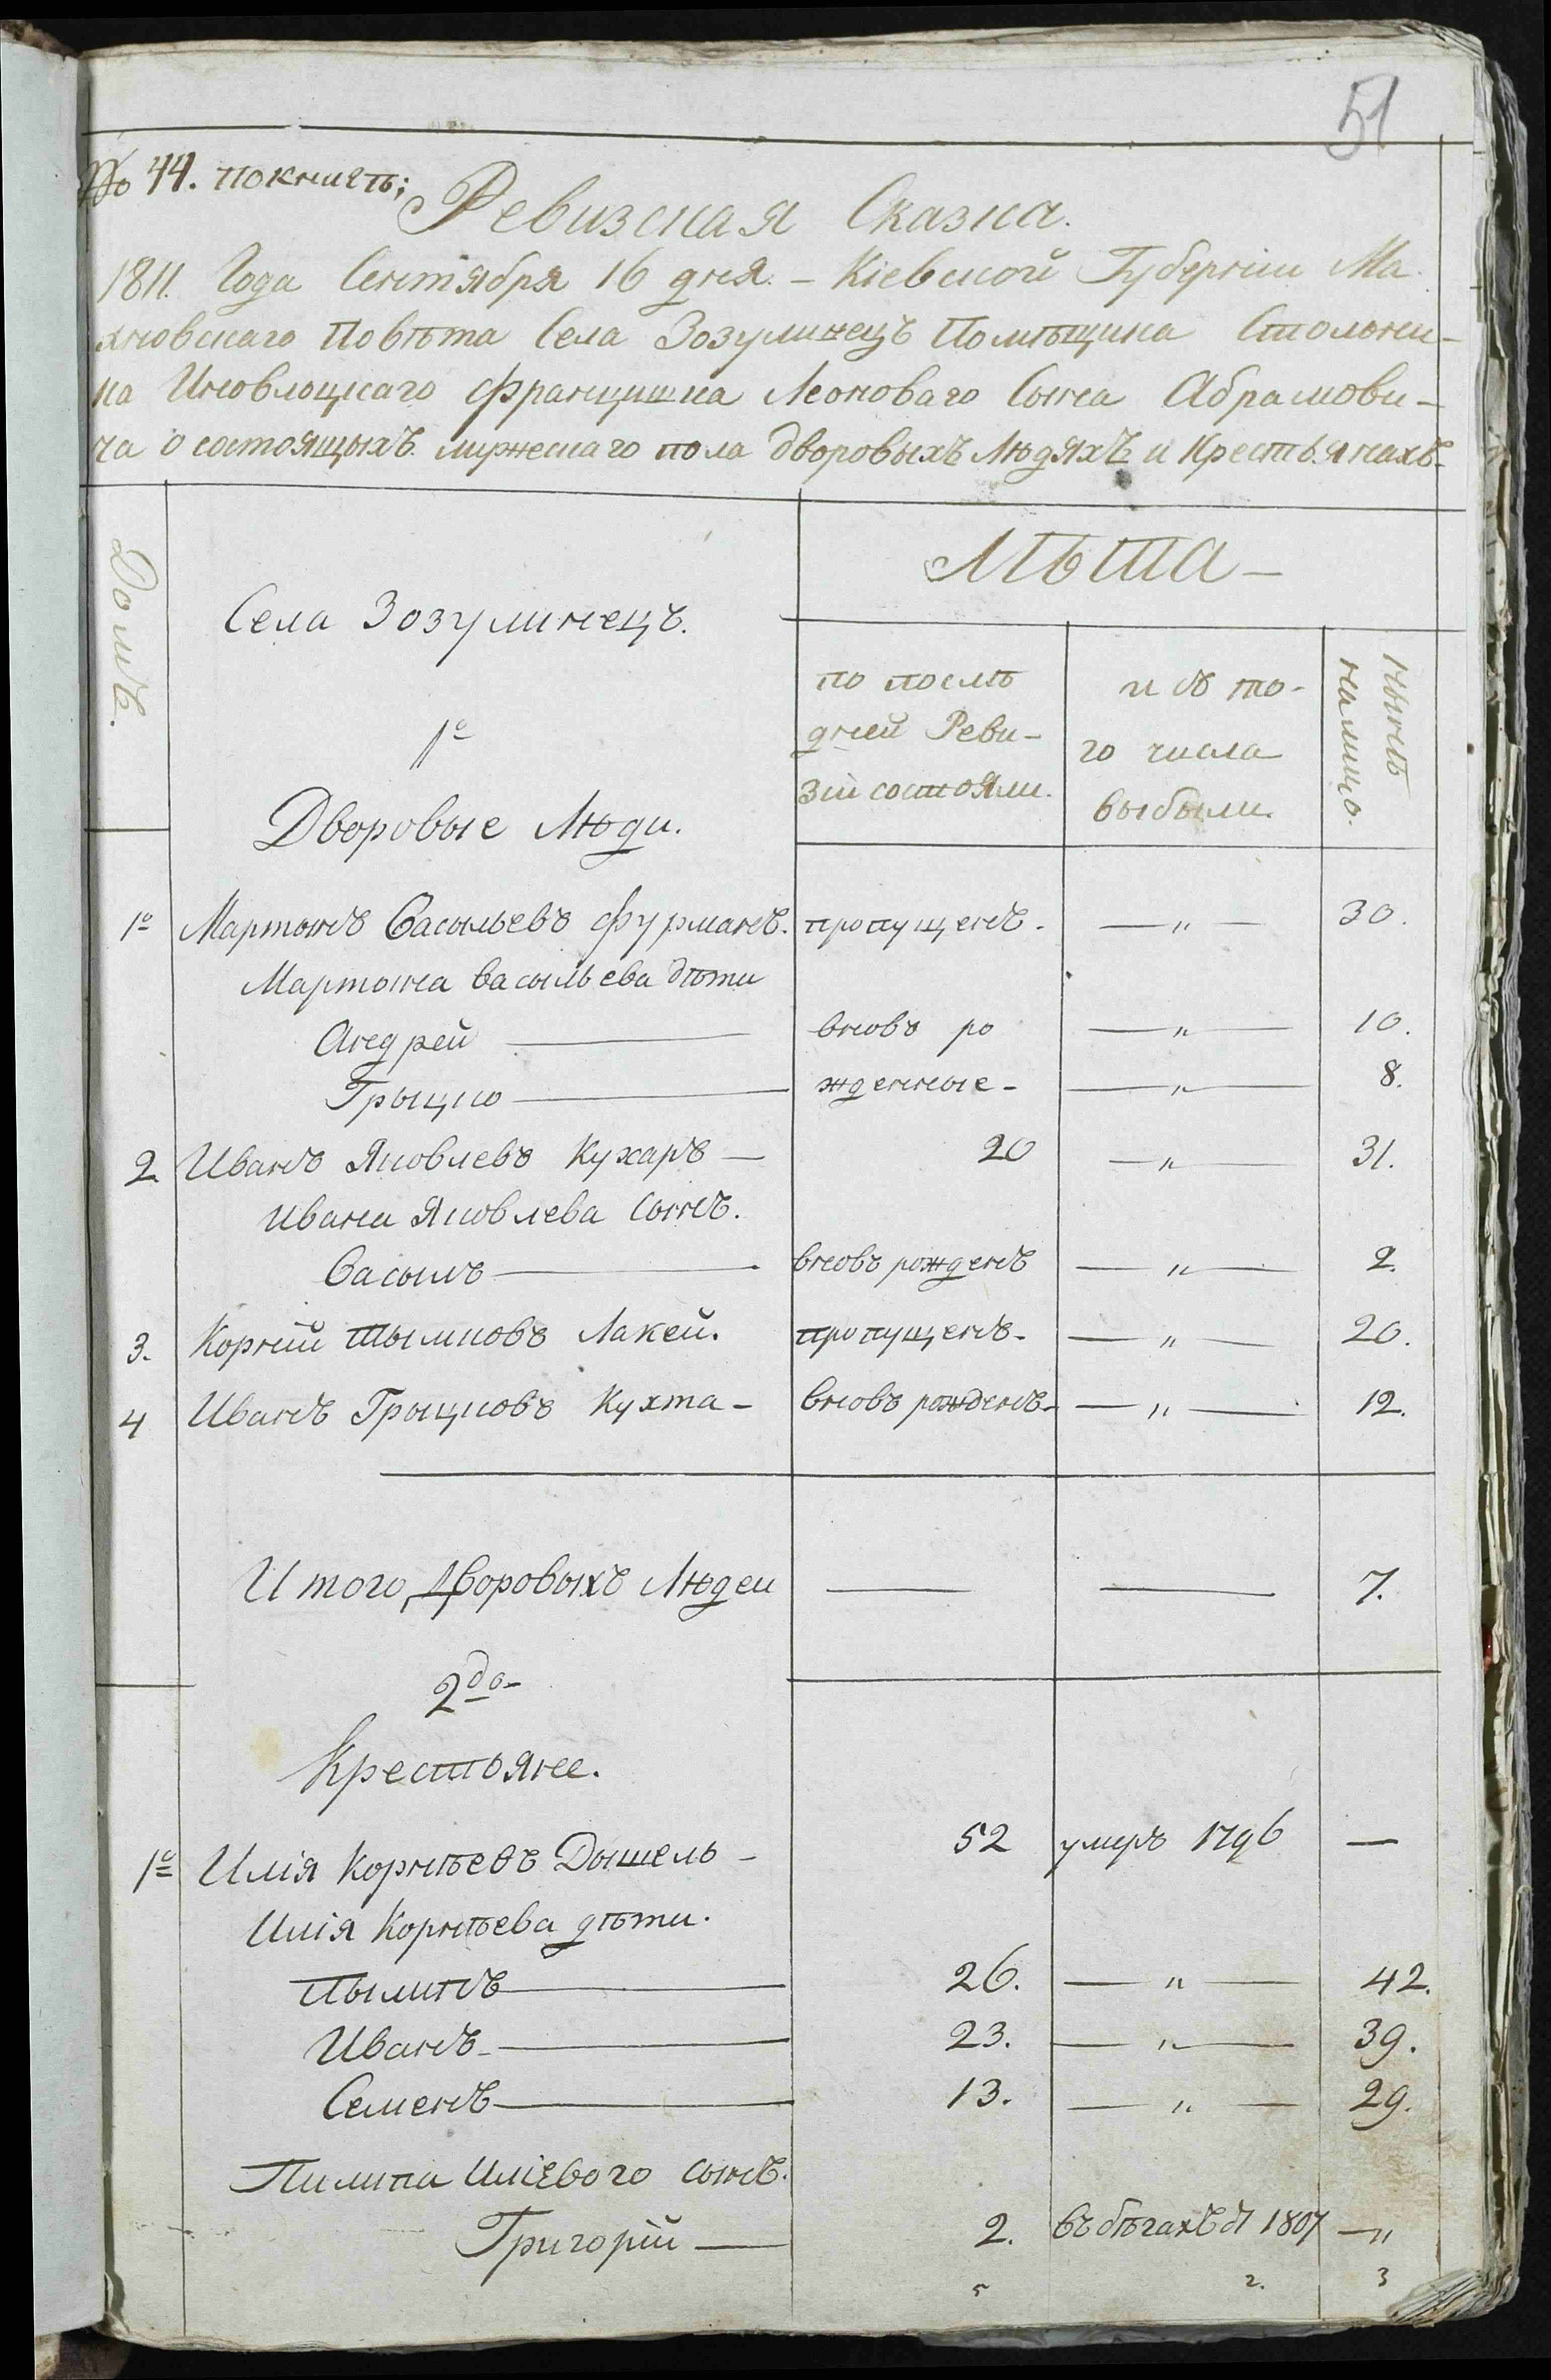 51
№ 44. по книгѣ;
Ревизская Сказка.
1811. Года Сентября 16 дня. – Кіевской Губерніи Ма
хновскаго Повѣта Села Зозулинецъ Помѣщика Стольни-
ка Иновлоцкаго Францишка Леоноваго Сына Абрамови-
ча о состоящыхъ мужескаго пола Дворовыхъ Людяхъ и Крестьянахъ.
Домъ.
Села Зозулинецъ.
1º
Дворовые Люди.
Лѣта –
по послѣ
дней Реви-
зіи состояли.
изъ то-
го числа
выбыли.
нынѣ
налицо.
1º Мартынъ Васыльевъ Фурманъ. пропущенъ. — " — 30.
Мартына Васыльева дѣти
Андрей — вновь ро — " — 10.
Грыцко — жденные – — " — 8.
2 Иванъ Яковлевъ Кухаръ — 20 — " — 31.
Ивана Яковлева Сынъ.
Васыль — вновь рожденъ — " — 2.
3. Корній Тымковъ Лакей. пропущенъ. — " — 20.
4 Иванъ Грыцковъ Кухта – вновь рожденъ. — " — 12.
Итого Дворовыхъ Людей — — 7.
2до-
Крестьяне.
1º Илія Корнѣевъ Дышель – 52 умеръ 1796 —
Илія Корнѣева дѣти.
Пылипъ — 26. — " — 42.
Иванъ — 23. — " — 39.
Семенъ — 13. — " — 29.
Пилипа Иліевого сынъ.
Григорій — 2. въ бѣгахъ съ 1807 — "
5 2. 3